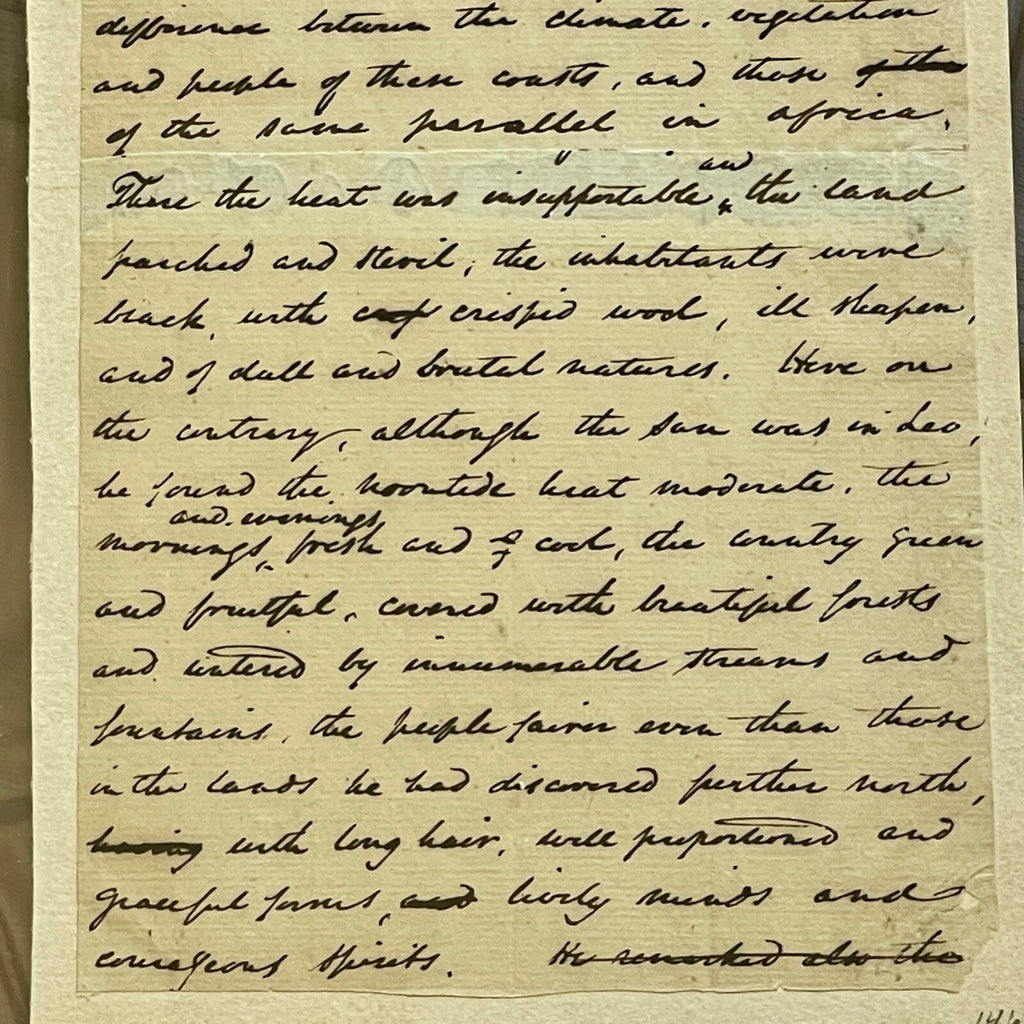 difference between the climate, vegetation
and people of these coasts, and those of the
of the same parallel in africa.
and
There the heat was insupportable, the land
parched and steril, the inhabitants were
black, with crispid wool, ill shapen,
and of dull and brutal natures. Here on
the contrary, although the sun was in Leo,
he found the noontide heat moderate, the
and evenings
mornings, fresh and cool, the country green
and fruitful, covered with beautiful forests
and watered by innumerable streams and
fountains, the people fairer even than those
in the lands he had discovered further north,
having with long hair, well proportioned and
graceful forms, and lively minds and
courageous spirits. He remarked also the